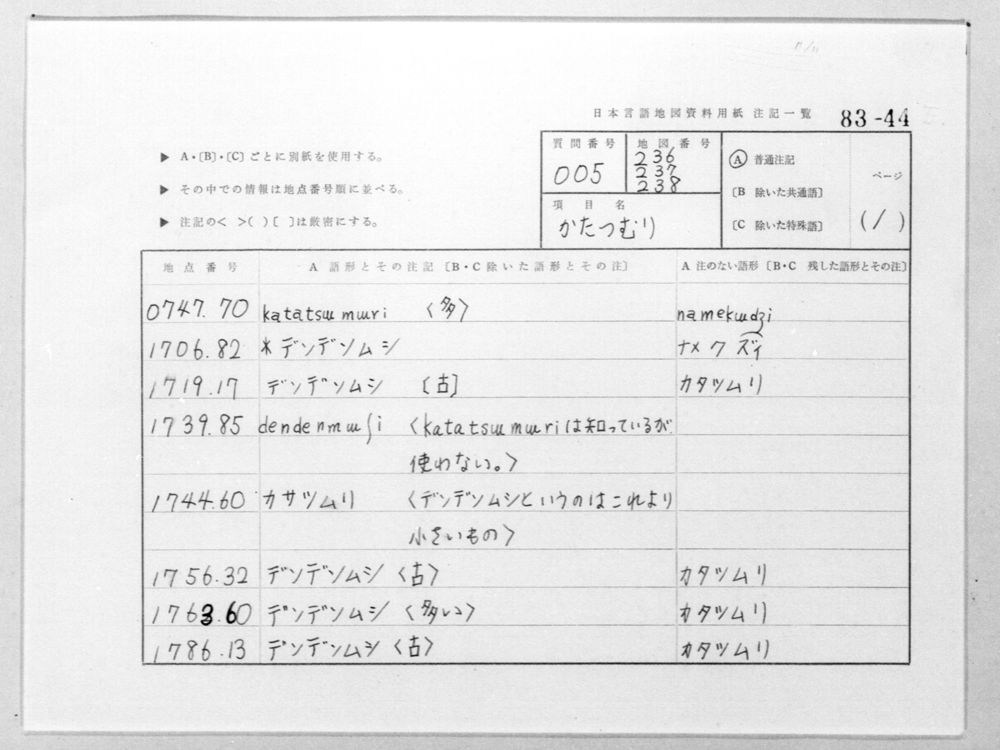 日本言語地図資料用紙 注記一覧 83-44
▶ A・〔B〕・〔C〕ごとに別紙を使用する。
▶ その中での情報は地点番号順に並べる。
▶ 注記の< >( )[ ]は厳密にする。
質問番号 005
地図番号 236
237
238
項目名
かたつむり
Ⓐ 普通注記
〔B 除いた共通語〕
〔C 除いた特殊語〕
ページ
(1)
地点番号 A 語形とその注記〔B・C 除いた語形とその注〕 A 注のない語形〔B・C 残した語形とその注〕
0747.70 katatsɯmɯri 〈多〉 namekɯdzi
1706.82 *デンデンムシ ナメクズィ
1719.17 デンデンムシ [古] カタツムリ
1739.85 dendenmɯʃi 〈katatsɯmɯriは知っているが
使わない。〉
1744.60 カサツムリ 〈デンデンムシというのはこれより
小さいもの〉
1756.32 デンデンムシ〈古〉 カタツムリ
1763.60 デンデンムシ〈多い〉 カタツムリ
1786.13 デンデンムシ〈古〉 カタツムリ